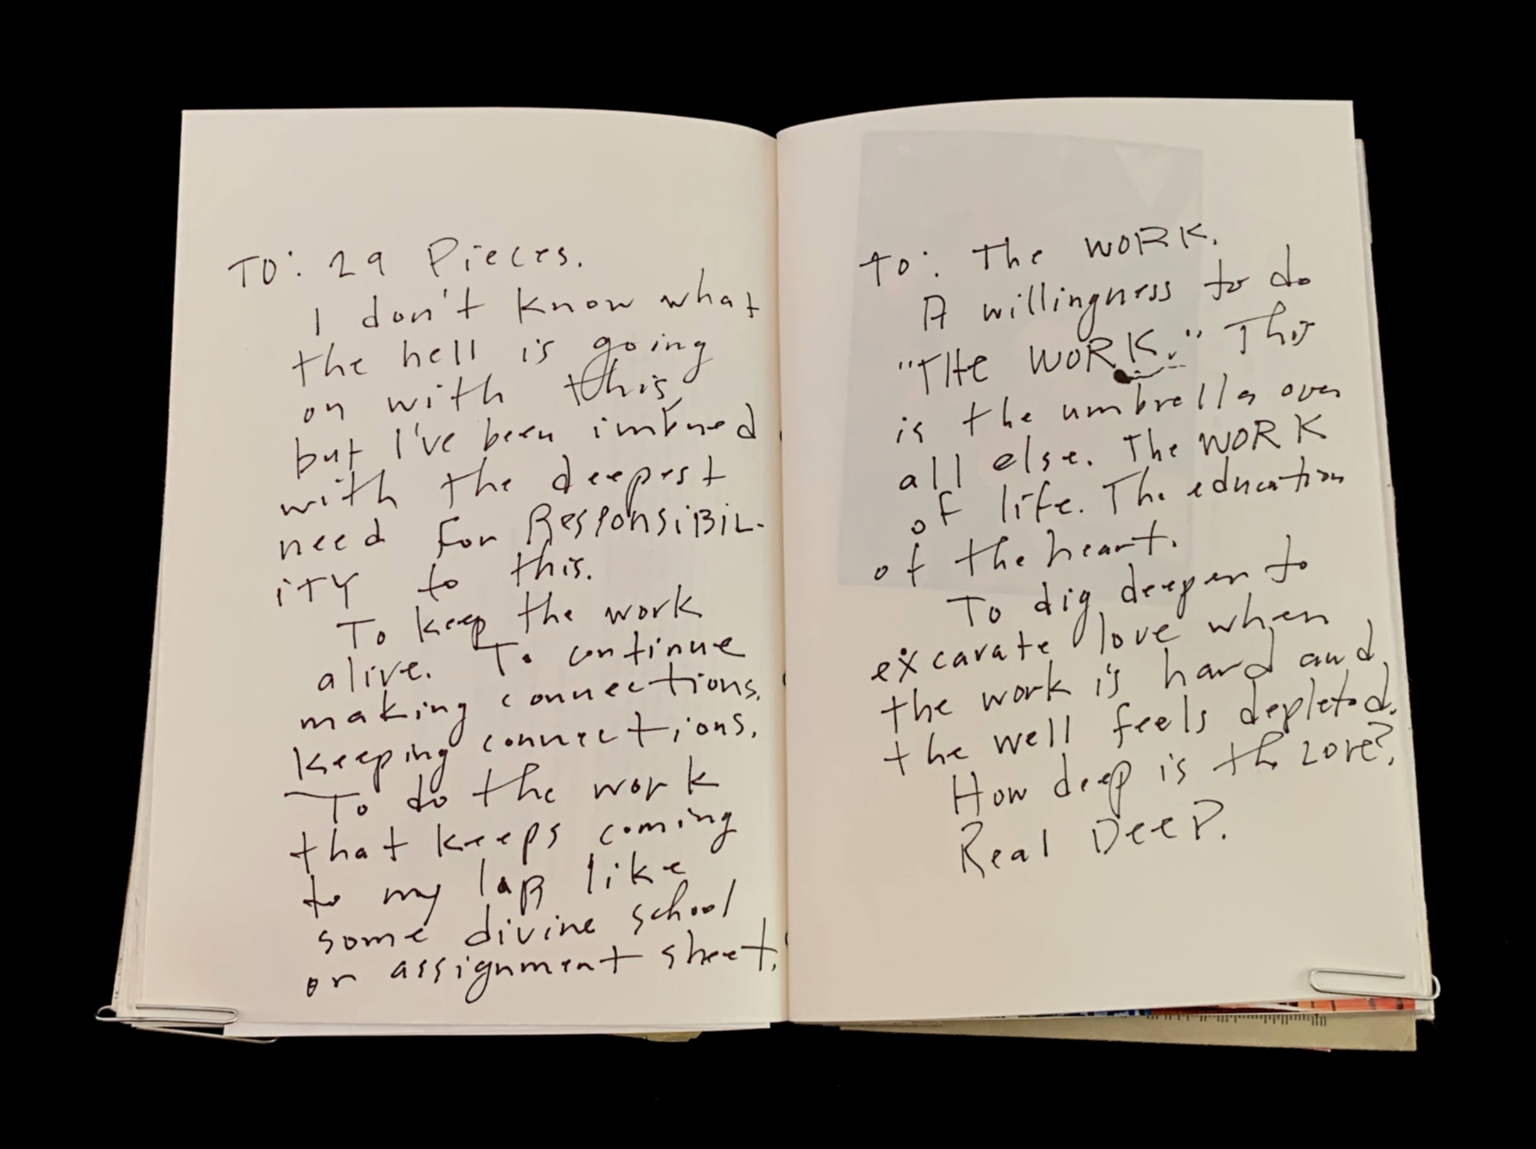 TO: 29 Pieces.
I don't know what
the hell is going
on with this,
but I've been imbued
with the deepest
need for RESPONSIBIL-
ITY to this.
To keep the work
alive. To continue
making connections.
keeping connections.
To do the work
that keeps coming
to my lap like
some divine school
or assignment sheet.
to: The WORK.
A willingness to do
"THE WORK." This
is the umbrella over
all else. The WORK
of life. The education
of the heart.
To dig deeper to
excavate love when
the work is hard and
the well feels depleted.
How deep is the love?
Real DeeP.